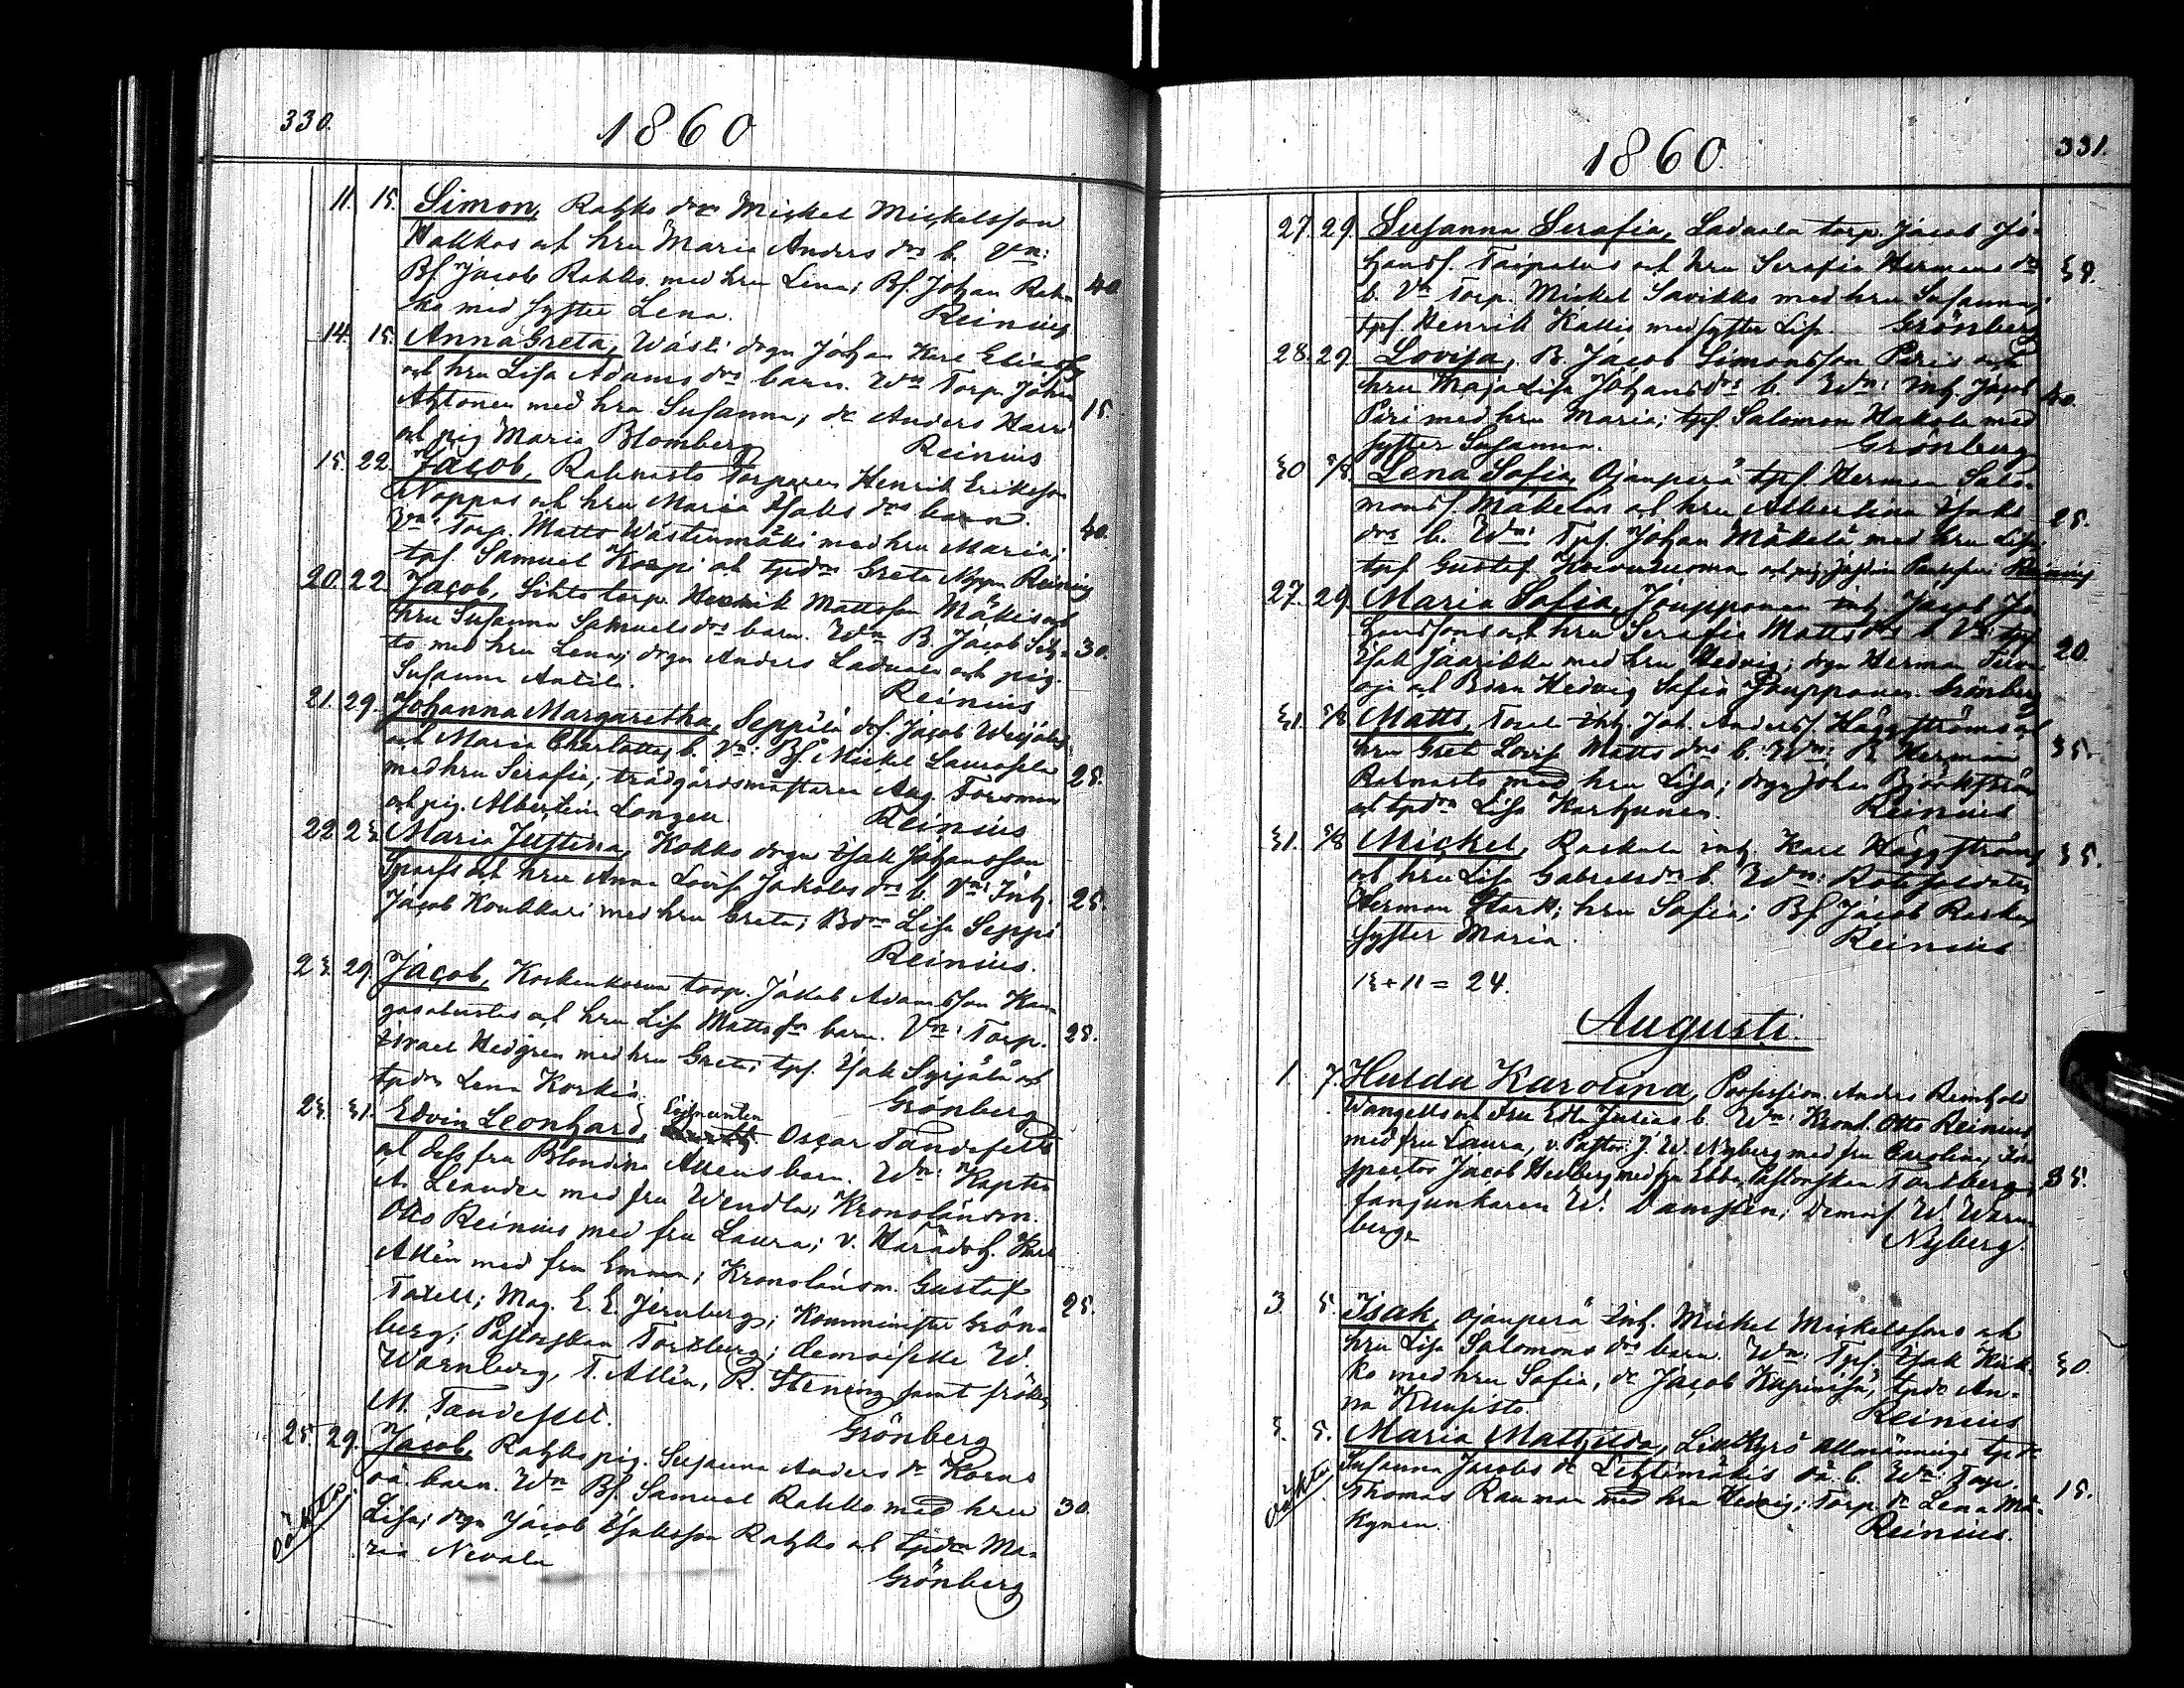 330.
1860
11. 15. Simon, Rahko drs Mickel Mickelsson
Hakkas och hru Maria Anders drs b. Vn:
Bf Jacob Rahko med hru Lena; Bf. Johan Rah- 40
ko med syster Lena. Reinius
14. 15. Anna Greta, Wästi drgn Johan Karl Eliass.
och hru Lisa Adams drs barn. Wn Torp. Johan
Ahtonen med hru Susanna; dr Anders Harri 15.
och pig Maria Blomberg Reinius
15. 22. Jacob, Rahnasto Torparen Henrik Eriksson
Noppas och hru Maria Isaks drs barn.
Vn: Torp. Matts Wästinmäki med hru Maria; 40.
tps. Samuel Korpi och tpdr Greta Reinius
20. 22. Jacob, torp. Henrik Mattsson Mäkis och
hru Susanna Samuels drs barn. Wn B Jacob
to med hru Lena; drgn Anders Laduala och pig. 30.
Susanna Antila. Reinius
21. 29. Johanna Margaretha, Seppälä Jacob
och Maria Charlotta b. Vn: Bf. Mickel
med hru Serafia; trädgårdsmästaren Aug. Forsman 25.
och pig. Albertina Longell. Reinius
22. 23. Maria Justina, Kokko drgn Isak Johansson
och hru Anna Lovisa Jakobs drs b. Vn: Inh.
Jacob Koukkari med hru Greta; Bdr Lisa Seppi 25.
Reinius.
23. 29. Jacob, Koskenkorva torp. Jakob Adamsson Kan-
och hru Lisa Matts dr barn. Vn: Torp. 25.
Israel Hedgren med hru Greta; tps. Isak Syrjälä och
tpdr Lena Korkis. Grönberg
23. 31. Edvin Leonhard, Oscar Tandefelts
och dess fru Blondina Alléns barn. Wn: Kapten
A. Leander med fru Wendla; Kronolänsm.
Otto Reinius med fru Laura; v. Häradsh. Karl
Allén med fru Emma; Kronolänsm. Gustaf
Taxell; Mag. E. E. Jernberg; Komminister Grön- 25.
berg; Pastorskan Forsberg; demoiselle W.
Warnberg, T. Allén, R. Stening samt fröken
M. Tandefelt. Grönberg
25. 29. Jacob, Rahko pig. Susanna Anders dr
oä. barn. Wn Bf. Samuel Rahko med hru 30.
oäkta.
Lisa; drgn Jacob Isaksson Rahko och tpdr Ma-
ria Nevala Grönberg
1860.
331.
27. 29. Susanna Serafia, Laduala torp. Jacob Jo-
hans. Taipalus och hru Serafia Hermans dr 38.
b. Vn Torp. Mickel Savikko med hru Susanna;
tps. Henrik Kallis med syster Lisa. Grönberg
28. 29. Lovisa, B. Jacob Simonsson Piris och
hru Maja Lisa Johans drs b. Wn: Inh. Jacob 40.
Piri med hru Maria; tps. Salomon Hakola med
syster Susanna. Grönberg
30 5/8. Lena Sofia, Ojanperä tps Herman Salo-
mons. Mäkeläs och hru Albertina Isaks 25.
drs b. Wn: Tps. Johan Mäkelä med hru Lisa;
tps Gustaf Reinius
27. 29 Maria Sofia, Jouppanen inh. Jacob Jo-
hanssons och hru Serafia Matts drs b. Vn: tps
Isak Jaarikka med hru Hedvig; drgn Herman 20.
oja och Bdrn Hedvig Sofia Jouppanen. Grönberg
31. 5/8 Matts, inh. Joh. Anders. Häggströms och
hru Greta Lovisa Matts drs b. Wn: B. Herman 35.
Rahnasto med hru Lisa; drgn John Björkström
och tpdrn Lisa Karhunen. Reinius
31. 5/8 Mickel, Raskala inh. Karl Häggströms
och hru Lisa Gabrielsdr b. Wn: Rotesoldaten 35.
Herman Stark; hru Sofia; Bf Jacob Rasku,
syster Maria. Reinius
13 + 11 = 24.
Augusti.
1. 7. Hulda Karolina, Possession. Anders Reinhold
Wangells och Fru Julias b. Wn: Kronl. Otto Reinius
med fru Laura, v. Pastor J. W. Nyberg med fru Carolina, In-
spektor Jacob Hedberg med fru Ebba, Pastorskan Forsberg, 35.
fanjunkaren W. Danstén; Demois. W. Warn-
berg. Nyberg.
3 5. Isak, Ojanperä Inh. Mickel Mickelssons och
hru Lisa Salomons drs barn. Wn: Tps. Isak 30.
ko med hru Sofia, dr Jacob tpdr An-
na Kuusisto. Reinius
3. 5. Maria Mathilda, Lillkyro Allmännings tpdr
Susanna Jacobs dr Lehtimäkis oä. b. Wn: Torp.
oäkta
Thomas Rauman med hru Hedvig; Torp. dr Lena Mä- 15.
kynen. Reinius.